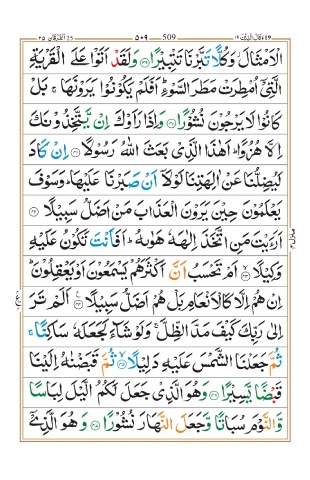 وقال الذين ١٩ 509 ٥٠٩ الفرقان ٢٥
الْاَمْثَالَ وَكُلًّا تَبَّرْنَا تَتْبِيْرًا ﴿۳۹﴾ وَلَقَدْ اَتَوْا عَلَى الْقَرْيَةِ
الَّتِيْۤ اُمْطِرَتْ مَطَرَ السَّوْءِ ؕ اَفَلَمْ يَكُوْنُوْا يَرَوْنَهَا ۚ بَلْ
كَانُوْا لَا يَرْجُوْنَ نُشُوْرًا ﴿۴۰﴾ وَاِذَا رَاَوْكَ اِنْ يَّتَّخِذُوْنَكَ
اِلَّا هُزُوًا ؕ اَهٰذَا الَّذِيْ بَعَثَ اللّٰهُ رَسُوْلًا ﴿۴۱﴾ اِنْ كَادَ
لَيُضِلُّنَا عَنْ اٰلِهَتِنَا لَوْلَاۤ اَنْ صَبَرْنَا عَلَيْهَا ؕ وَسَوْفَ
يَعْلَمُوْنَ حِيْنَ يَرَوْنَ الْعَذَابَ مَنْ اَضَلُّ سَبِيْلًا ﴿۴۲﴾
اَرَءَيْتَ مَنِ اتَّخَذَ اِلٰهَهٗ هَوٰىهُ ؕ اَفَاَنْتَ تَكُوْنُ عَلَيْهِ
وَكِيْلًا ﴿۴۳﴾ اَمْ تَحْسَبُ اَنَّ اَكْثَرَهُمْ يَسْمَعُوْنَ اَوْ يَعْقِلُوْنَ ؕ
اِنْ هُمْ اِلَّا كَالْاَنْعَامِ بَلْ هُمْ اَضَلُّ سَبِيْلًا ﴿۴۴﴾ اَلَمْ تَرَ
اِلٰى رَبِّكَ كَيْفَ مَدَّ الظِّلَّ ۚ وَلَوْ شَآءَ لَجَعَلَهٗ سَاكِنًا ۚ
ثُمَّ جَعَلْنَا الشَّمْسَ عَلَيْهِ دَلِيْلًا ﴿۴۵﴾ ثُمَّ قَبَضْنٰهُ اِلَيْنَا
قَبْضًا يَّسِيْرًا ﴿۴۶﴾ وَهُوَ الَّذِيْ جَعَلَ لَكُمُ الَّيْلَ لِبَاسًا
وَّالنَّوْمَ سُبَاتًا وَّجَعَلَ النَّهَارَ نُشُوْرًا ﴿۴۷﴾ وَهُوَ الَّذِيْۤ